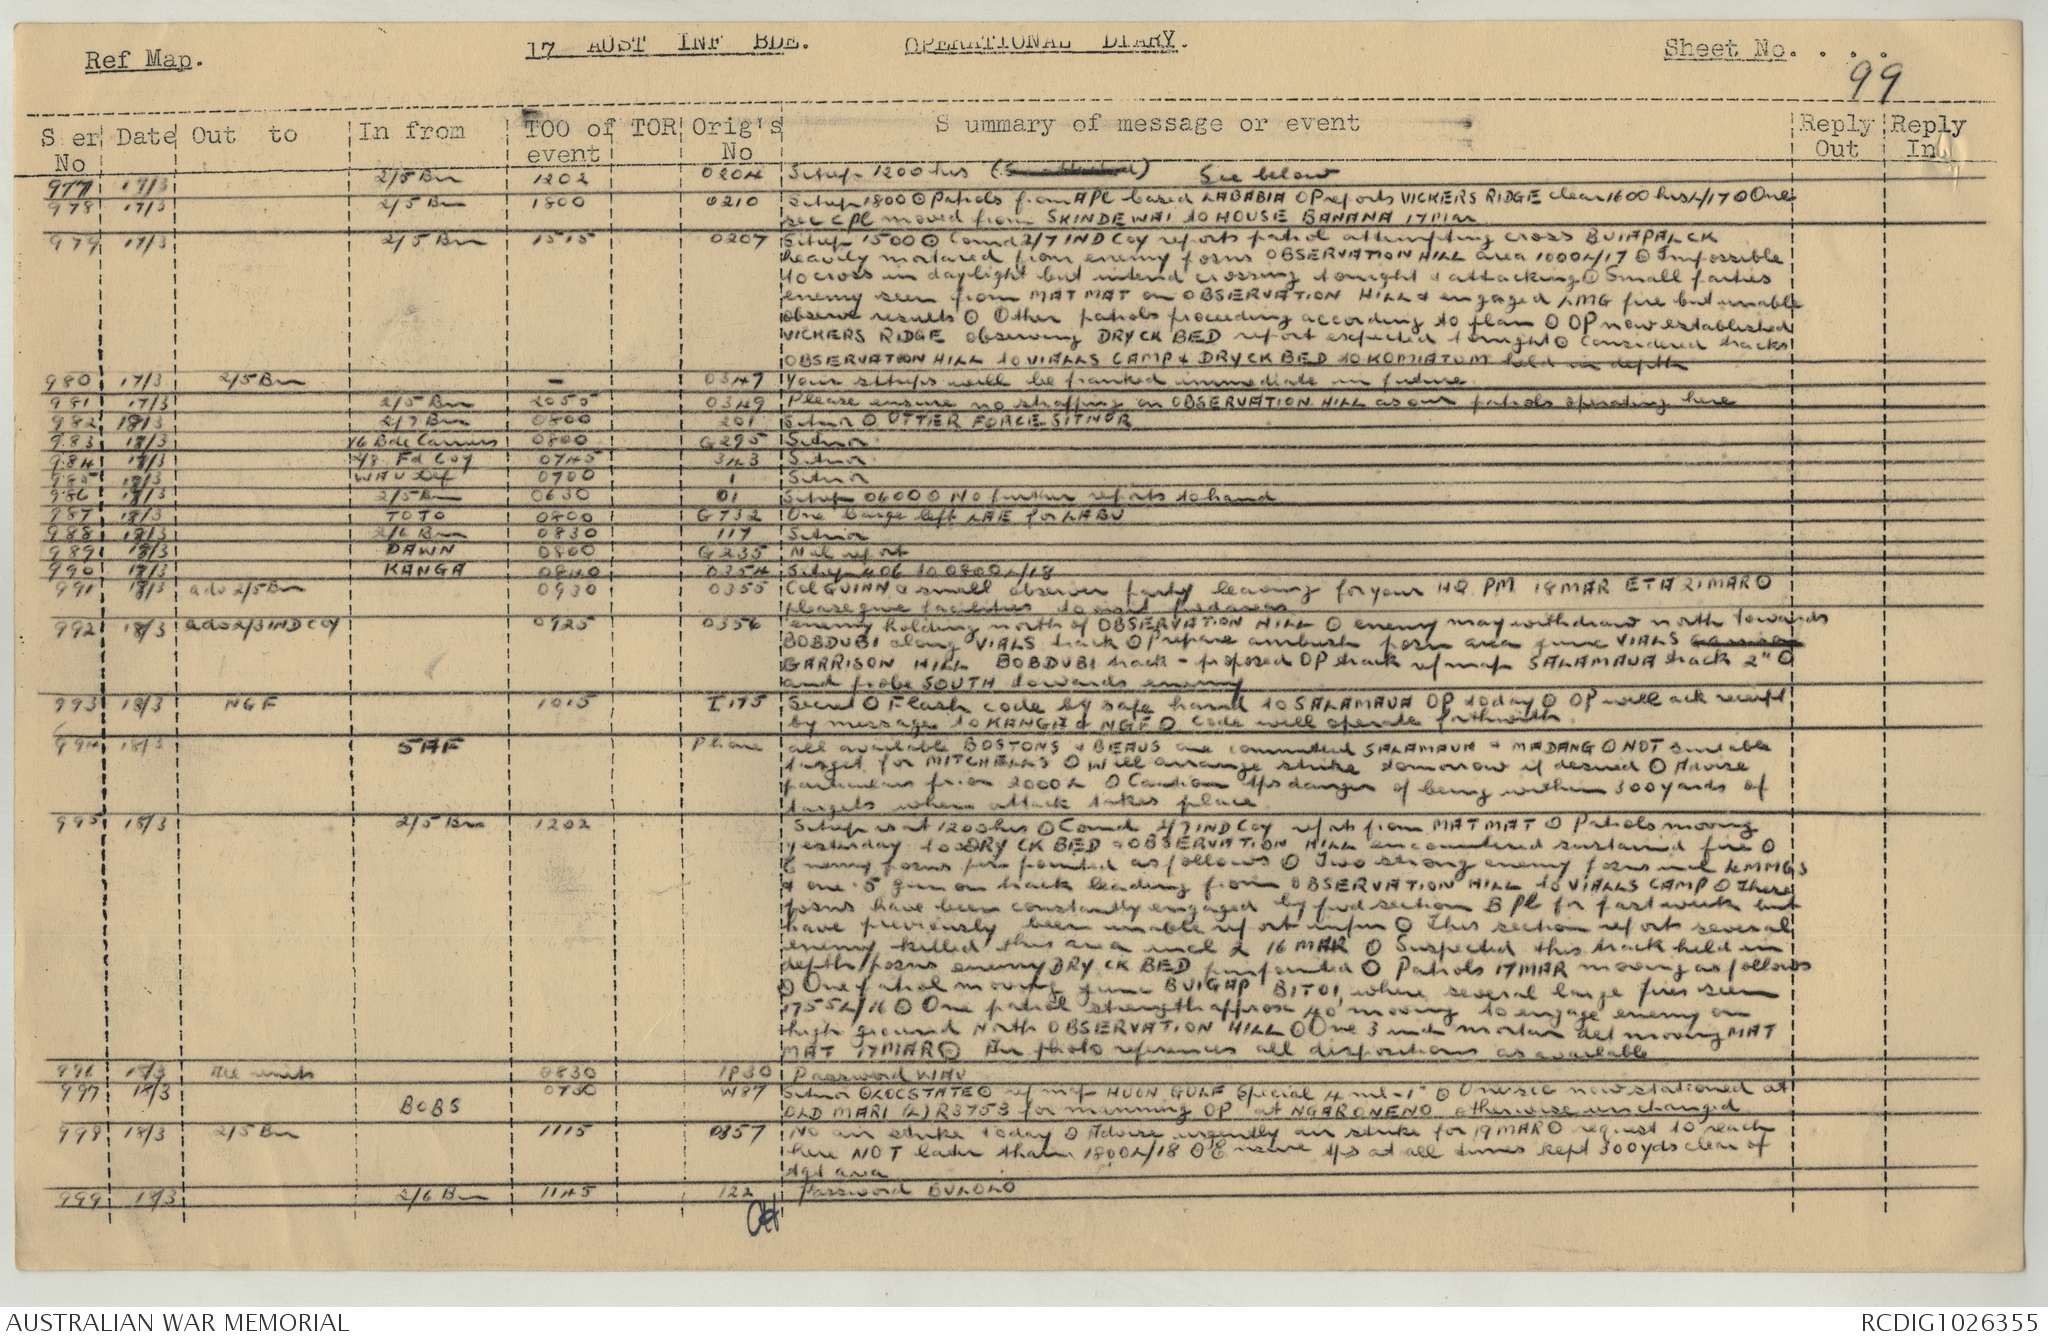 Ref Map.
17 AUST INF BDE. OPERATIONAL DIARY.
Sheet No. . . .
99
Ser No | Date | Out to | In from | TOO of event | TOR | Orig's No | Summary of message or event | Reply Out | Reply In
977 17/3 2/5 Bn 1202 0204 Sitrep 1200 hrs See below
978 17/3 2/5 Bn 1800 0210 Sitrep 1800 O Patrols from A PL based LABABIA OP reports VICKERS RIDGE clear 1600 hrs L/17 O One
sec C PL moved from SKINDEWAI to HOUSE BANANA 17 Mar
979 17/3 2/5 Bn 1515 0207 Sitrep 1500 O Comd 2/7 IND Coy reports patrol attempting cross BUIAPAL CK
heavily mortared from enemy posns OBSERVATION HILL area 1000L/17 O Impossible
to cross in daylight but intend crossing tonight & attacking O Small parties
enemy seen from MAT MAT on OBSERVATION HILL & engaged LMG fire but unable
observe results O Other patrols proceeding according to plan O OP now established
VICKERS RIDGE observing DRY CK BED report expected tonight O Considered tracks
OBSERVATION HILL to VIALLS CAMP & DRY CK BED to KOMIATUM held in depth
980 17/3 2/5 Bn - 0347 Your sitreps will be franked immediate in future
981 17/3 2/5 Bn 2055 0349 Please ensure no strafing on OBSERVATION HILL as our patrols operating here
982 18/3 2/7 Bn 0800 201 Sitnor O OTTER FORCE SITNOR
983 18/3 16 Bde Carriers 0800 G295 Sitnor
984 18/3 2/8 Fd Coy 0745 343 Sitnor
985 18/3 WAU Def 0700 1 Sitnor
986 18/3 2/5 Bn 0630 01 Sitrep 0600 O No further reports to hand
987 18/3 TOTO 0800 G732 One barge left LAE for LABU
988 18/3 2/6 Bn 0830 117 Sitnor
989 18/3 DAWN 0800 G235 Nil report
990 18/3 KANGA 0840 0354 Sitrep 406 to 0800L/18
991 18/3 adv 2/5 Bn 0930 0355 Col GUINN & small observer party leaving for your HQ PM 18 MAR ETA 21 MAR O
please give facilities to visit fwd areas
992 18/3 adv 2/3 IND COY 0925 0356 enemy holding north of OBSERVATION HILL O enemy may withdraw north towards
BOBDUBI along VIALS track O Prepare ambush posn area junc VIALS
GARRISON HILL BOBDUBI track - proposed OP track ref map SALAMAUA track 2" O
and probe SOUTH towards enemy
993 18/3 NGF 1015 I175 Secret O Flash code by safe hand to SALAMAUA OP today O OP will ack receipt
by message to KANGA & NGF O Code will operate forthwith
994 18/3 5AF Phone all available BOSTONS & BEAUS are committed SALAMAUA & MADANG O NOT suitable
target for MITCHELLS O Will arrange strike tomorrow if desired O Advise
particulars prior 2000L O Caution tps danger of being within 300 yards of
targets when attack takes place
995 18/3 2/5 Bn 1202 Sitrep as at 1200 hrs O Comd 2/7 IND Coy reports from MAT MAT O Patrols moving
yesterday to DRY CK BED & OBSERVATION HILL encountered sustained fire O
Enemy posns pin pointed as follows O Two strong enemy posns incl 4 MMGs
& one .5 gun on track leading from OBSERVATION HILL to VIALLS CAMP O These
posns have been constantly engaged by fwd section B PL for past week but
have previously been unable report infm O This section reports several
enemy killed this area incl 2 16 MAR O Suspected this track held in
depth posns enemy DRY CK BED pinpointed O Patrols 17 MAR moving as follows
O One patrol moving junc BUIGAP BITOI, where several large fires seen
1755L/16 O One patrol strength approx 40 moving to engage enemy on
high ground North OBSERVATION HILL O One 3 inch mortar det moving MAT
MAT 17 MAR O Air photo references all dispositions as available
996 18/3 All units 0830 1P30 Password WAU
997 18/3 BOBS 0730 W87 Sitnor O LOCSTATE O ref map HUON GULF Special 4 ml-1" O One sec now stationed at
OLD MARI (L) R3753 for manning OP at NGARONENO otherwise unchanged
998 18/3 2/5 Bn 1115 0357 No air strike today O Advise urgently air strike for 19 MAR O request to reach
here NOT later than 1800L/18 O Ensure tps at all times kept 300 yds clear of
tgt area
999 18/3 2/6 Bn 1145 122 Password BULOLO
AUSTRALIAN WAR MEMORIAL
RCDIG1026355